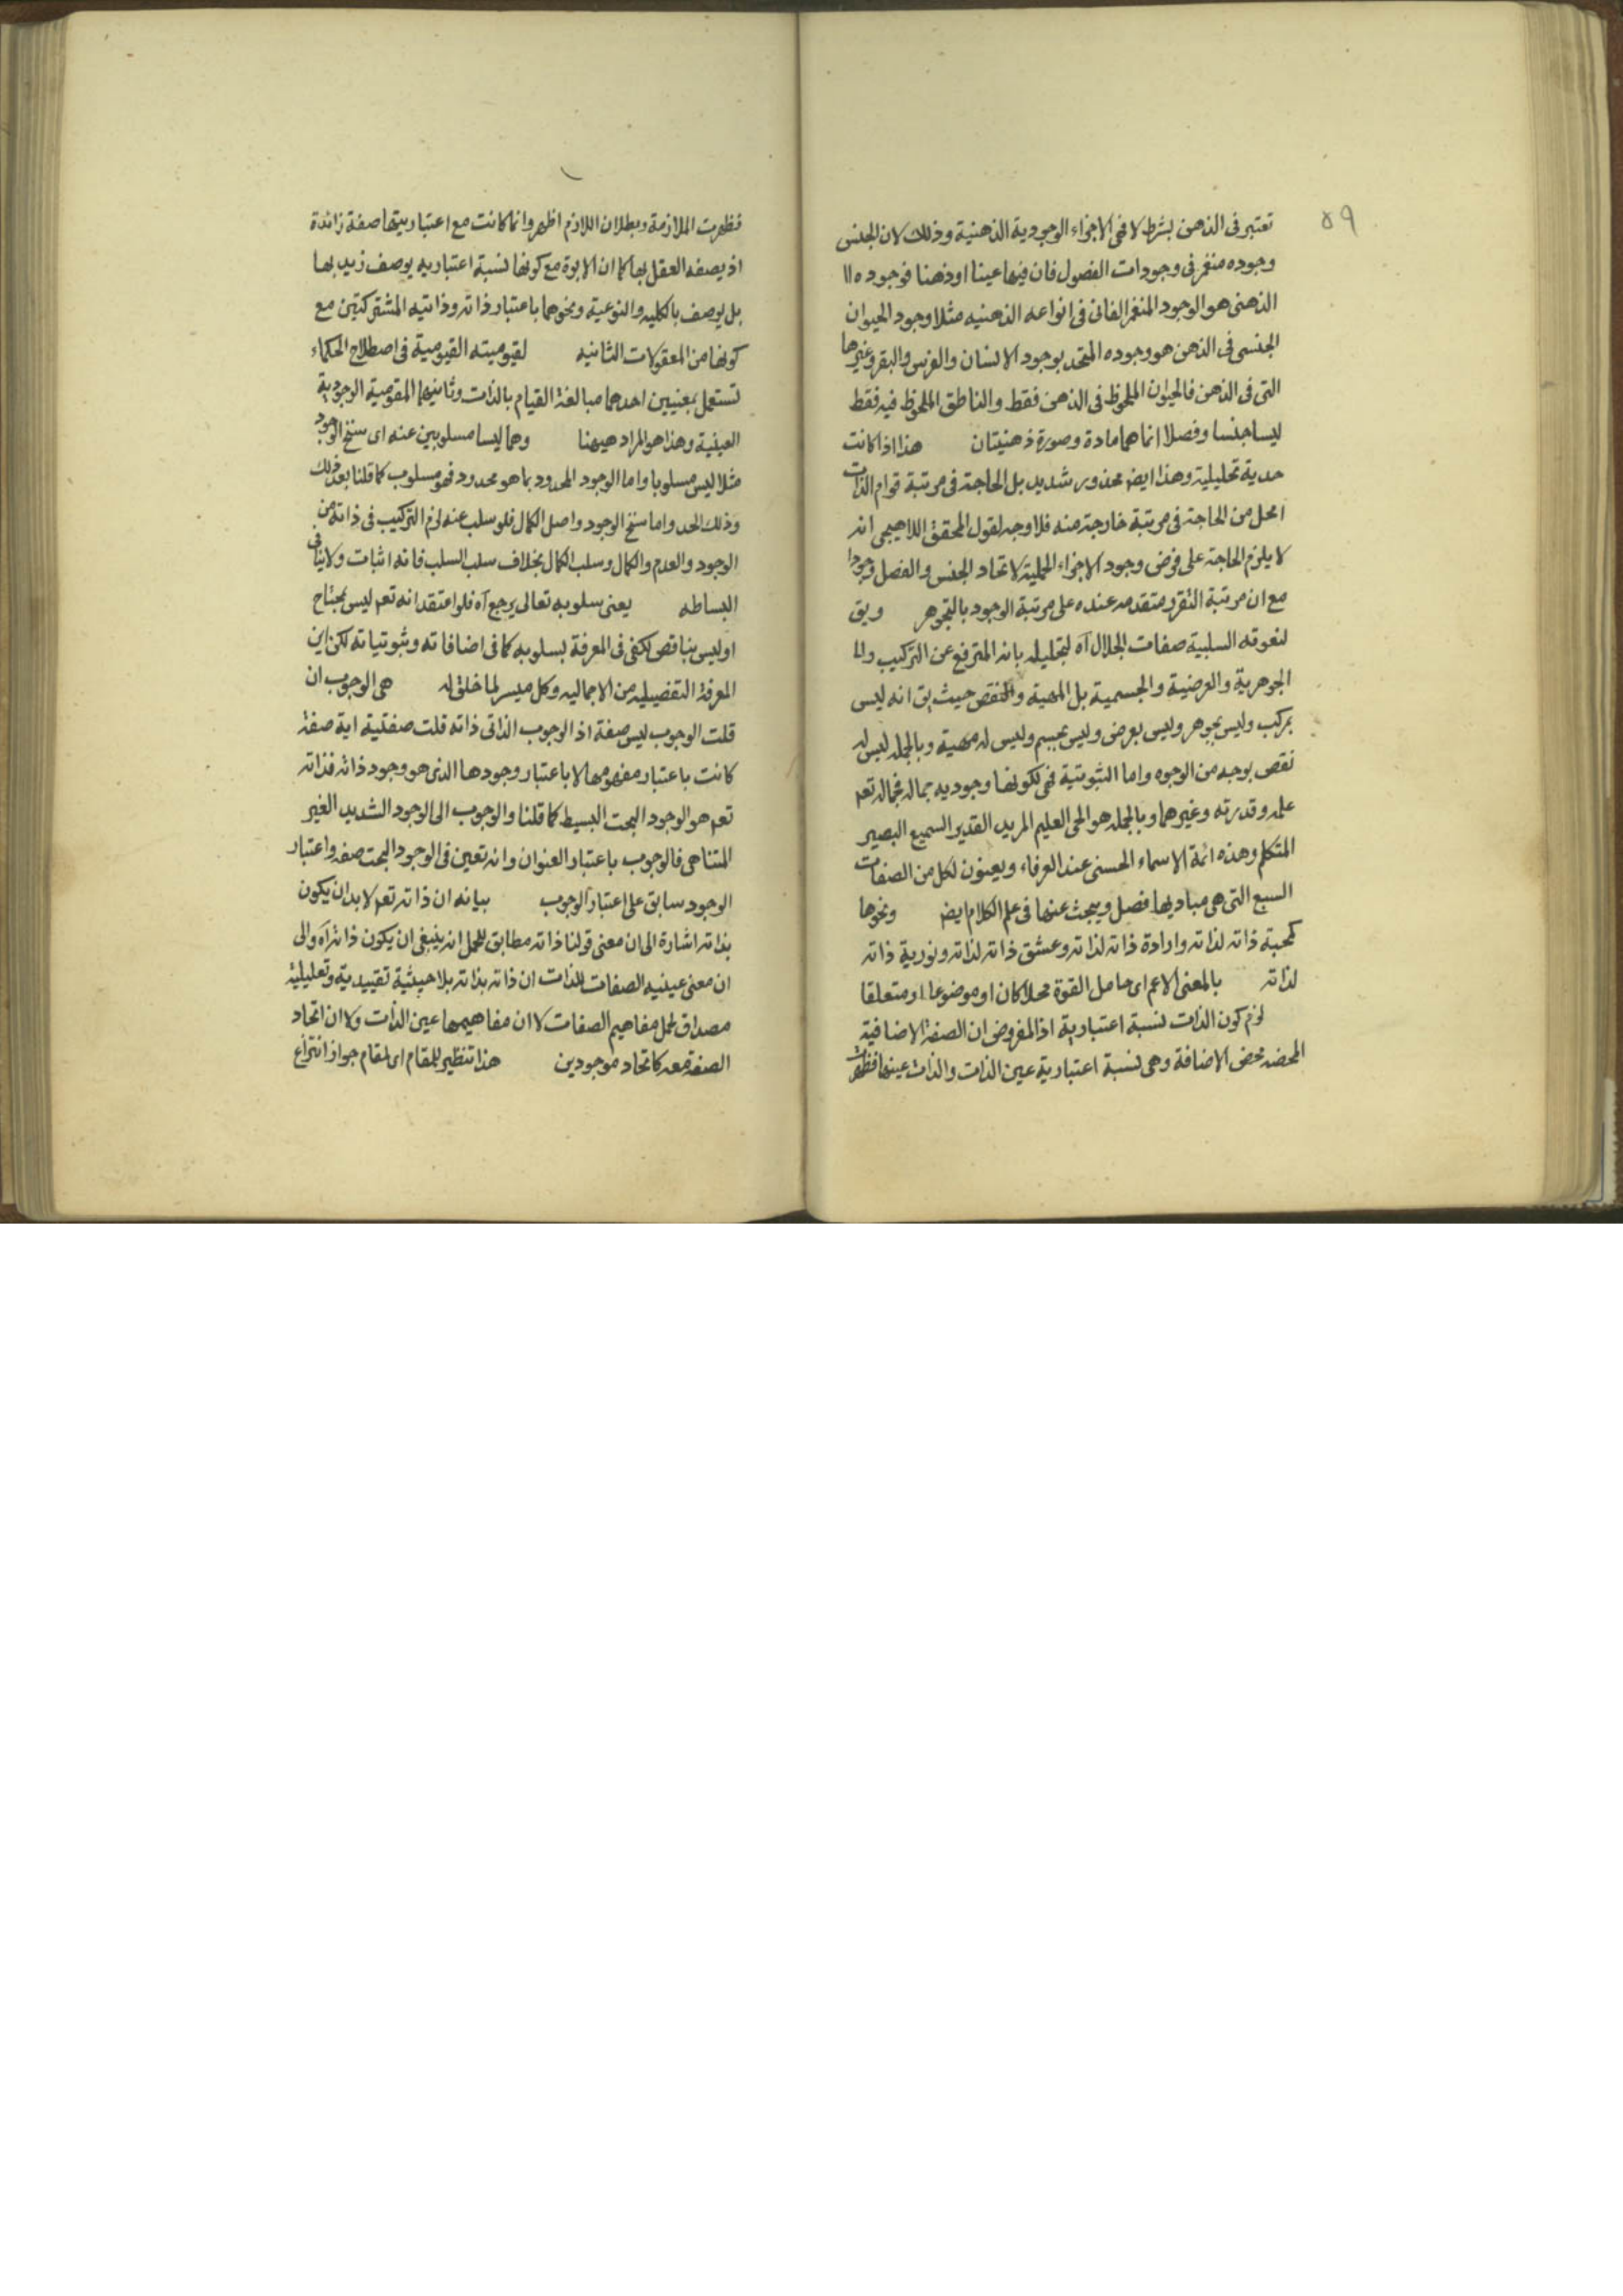 ٥٩
تعتبر فى الذهن بشرط لا فهى الاجزاء الوجودية الذهنية وذلك لان الجنس
وجوده منغمر فى وجودات الفصول فان فيها عينا او ذهنا فوجوده اا
الذهنى هو الوجود المنغمر الفانى فى انواعه الذهنيه مثلا وجود الحيوان
الجنسى فى الذهن هو وجوده المتحد بوجود الانسان والفرس والبقر وغيرها
التى فى الذهن فالحيوان الملحوظ فى الذهن فقط والناطق الملحوظ فيه فقط
ليسا جنسا وفصلا انما هما مادة وصورة ذهنيتان هذا اذا كانت
حدية تحليلية وهذا ايض محذور شديد بل الحاجة فى مرتبة قوام الذات
امحل من الحاجة فى مرتبة خارجة منه فلا وجه لقول المحقق اللاهيجى انه
لا يلزم الحاجة على فرض وجود الاجزاء الحملية لاتحاد الجنس والفصل وجودا
مع ان مرتبة التقرر متقدمه عنده على مرتبة الوجود بالتجوهر ويق
لنعوته السلبية صفات الجلال آه لتجليله بانه المترفع عن التركيب واا
الجوهرية والعرضية والجسمية بل المهية والنقص حيث يق انه ليس
بمركب وليس بجوهر وليس بعرض وليس بجسم وليس له مهية وبالجمله ليس له
نقص بوجه من الوجوه واما الثبوتية فهى لكونها وجوديه بماله فجماله تعم
علمه وقدرته وغيرهما وبالجمله هو الحى العليم المريد القدير السميع البصير
المتكلم وهذه ائمة الاسماء الحسنى عند العرفاء ويعنون لكل من الصفات
السبع التى هى مباديها فصل ويبحث عنها فى علم الكلام ايض ونحوها
كمحبة ذاته لذاته وارادة ذاته لذاته وعشق ذاته لذاته ونورية ذاته
لذاته بالمعنى الاعم اى حامل القوة محلا كان او موضوعا او متعلقا
لزم كون الذات نسبة اعتبارية اذ المفروض ان الصفة الاضافية
المحضه محض الاضافة وهى نسبة اعتبارية عين الذات والذات عينها فظهرت
فظهرت الملازمة وبطلان اللازم اظهر وانما كانت مع اعتباريتها صفة زائدة
اذ يصفه العقل بها كما ان الابوة مع كونها نسبة اعتباريه يوصف زيد بها
بل يوصف بالكليه والنوعية ونحوهما باعتبار ذاته وذاتيه المشتركتين مع
كونها من المعقولات الثانيه لقيوميته القيومية فى اصطلاح الحكماء
تستعمل بمعنيين احدهما مبالغة القيام بالذات وثانيهما المقومية الوجودية
العينية وهذا هو المراد هيهنا وهما ليسا مسلوبين عنه اى سنخ الوجود
مثلا ليس مسلوبا واما الوجود المحدود بما هو محدود فهو مسلوب كما قلنا بعد ذلك
وذلك الحد واما سنخ الوجود واصل الكمال فلو سلب عنه لزم التركيب فى ذاته من
الوجود والعدم والكمال وسلب الكمال بخلاف سلب السلب فانه اثبات ولا ينافى
البساطه يعنى سلوبه تعالى يرجع آه فلو اعتقد انه تعم ليس بمحتاج
او ليس بناقص لكفى فى المعرفة بسلوبه كما فى اضافاته وثبوتياته لكن اين
المعرفة التفضيليه من الاجماليه وكل ميسر لما خلق له هى الوجوب ان
قلت الوجوب ليس صفة اذ الوجوب الذاتى ذاته قلت صفتية اية صفة
كانت باعتبار مفهومها لا باعتبار وجودها الذى هو وجود ذاته فذاته
تعم هو الوجود البحت البسيط كما قلنا والوجوب الى الوجود الشديد الغير
المتناهى فالوجوب باعتبار العنوان وانه تعين فى الوجود البحت صفه واعتبار
الوجود سابق على اعتبار الوجوب بيانه ان ذاته تعم لا بد ان يكون
بذاته اشارة الى ان معنى قولنا ذاته مطابق للحمل انه ينبغى ان يكون ذاته آه والى
ان معنى عينيه الصفات للذات ان ذاته بذاته بلا حيثية تقييدية وتعليلية
مصداق لحمل مفاهيم الصفات لا ان مفاهيمها عين الذات ولا ان اتحاد
الصفة معه كاتحاد موجودين هذا تنظير للمقام اى لمقام جواز انتزاع